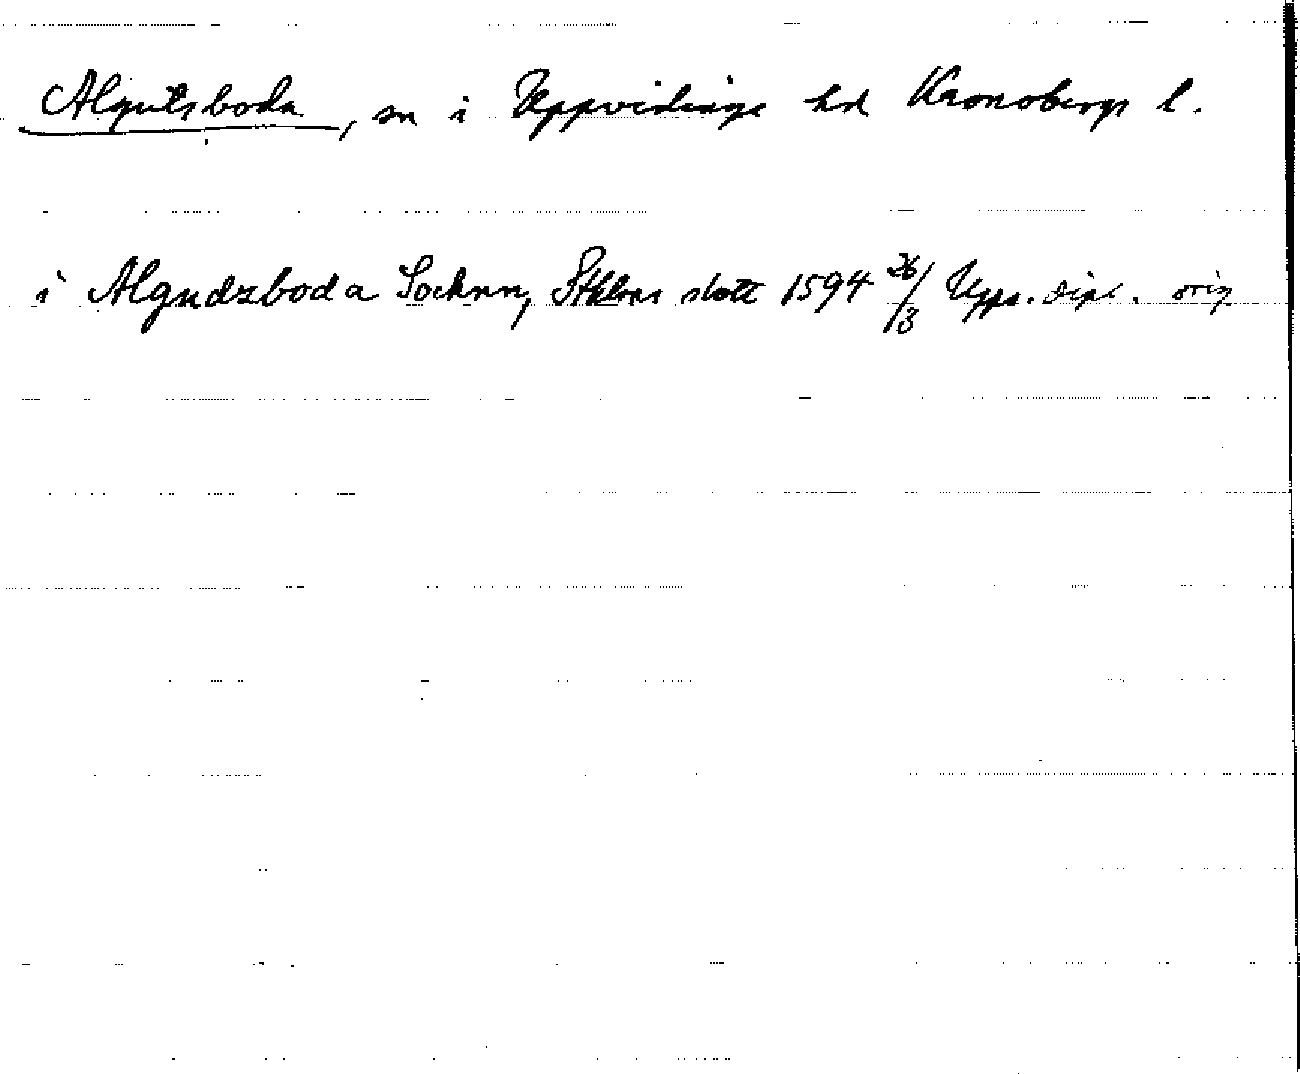 Algutsboda, sn i Uppvidinge hd Kronobergs l.
i Algudzboda Socknn, Sthlms slott 1594 26/3 Upps. dipl. orig